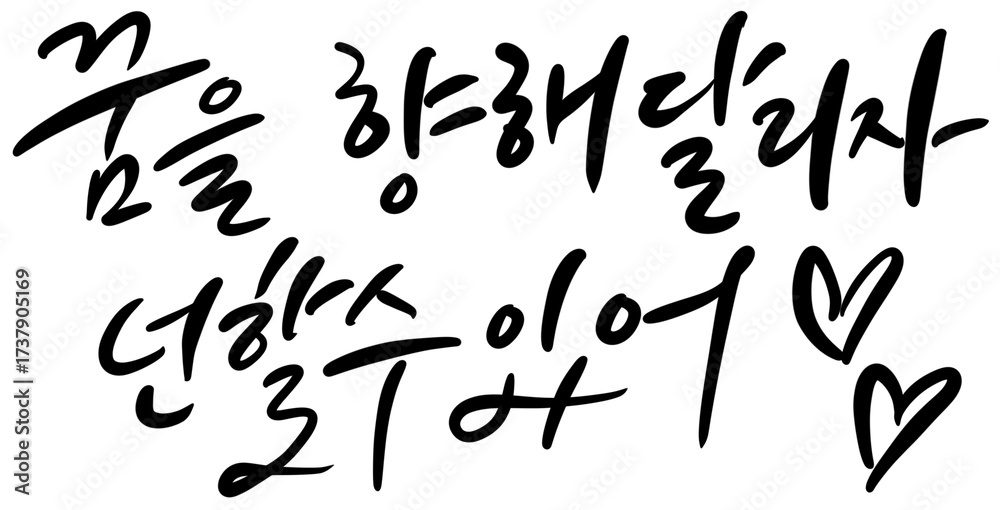 꿈을 향해 달리자
넌 할 수 있어
Adobe Stock | #1737905169